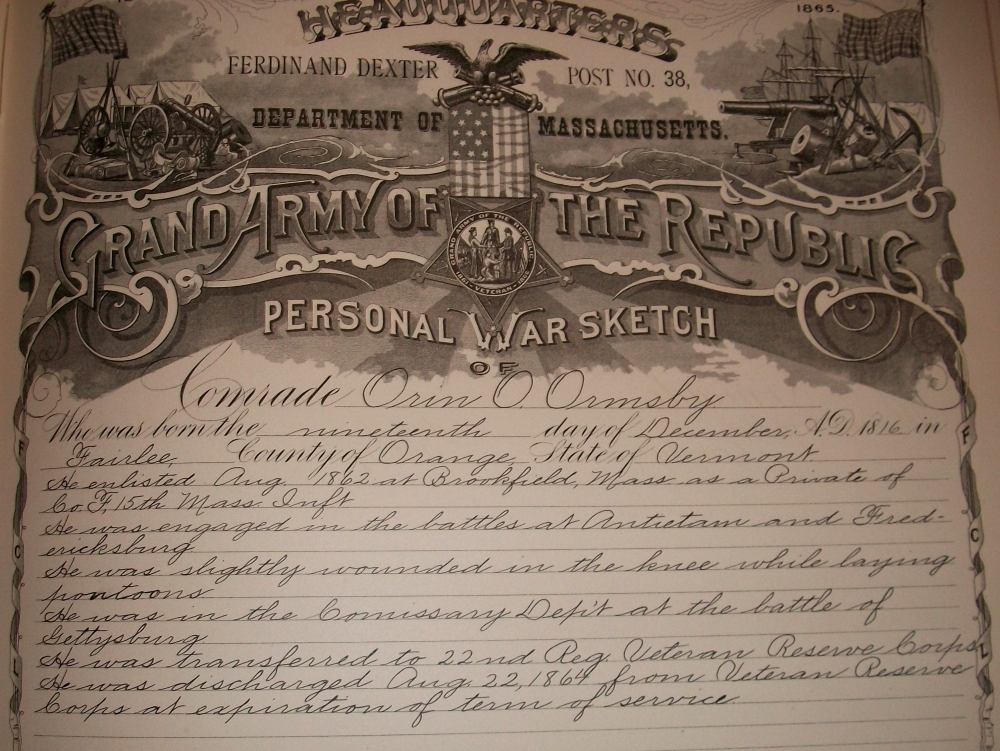 HEADQUARTERS
1865.
FERDINAND DEXTER POST NO. 38,
DEPARTMENT OF MASSACHUSETTS.
GRAND ARMY OF THE REPUBLIC
GRAND ARMY OF THE REPUBLIC
1861 - VETERAN - 1866
PERSONAL WAR SKETCH
OF
Comrade Orin O. Ormsby
Who was born the nineteenth day of December, A.D. 1816 in
Fairlee, County of Orange, State of Vermont
He enlisted Aug. 1862 at Brookfield, Mass as a Private of
Co. F, 15th Mass. Inft
He was engaged in the battles at Antietam and Fred-
ericksburg
He was slightly wounded in the knee while laying
pontoons
He was in the Comissary Dep't at the battle of
Gettysburg
He was transferred to 22nd Reg. Veteran Reserve Corps
He was discharged Aug. 22, 1864 from Veteran Reserve
Corps at expiration of term of service
F
C
L
F
C
L